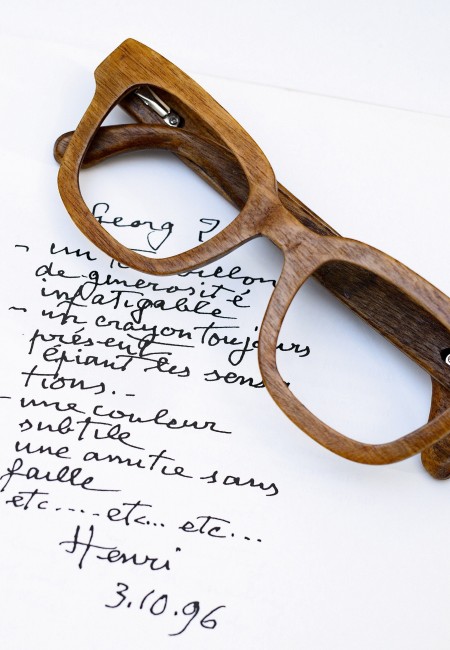 Georg ?
- un tourbillon
de générosité
infatigable
- un crayon toujours
présent
épiant les sensa
tions..-
- une couleur
subtile
une amitié sans
faille
etc.....etc... etc...
Henri
3.10.96